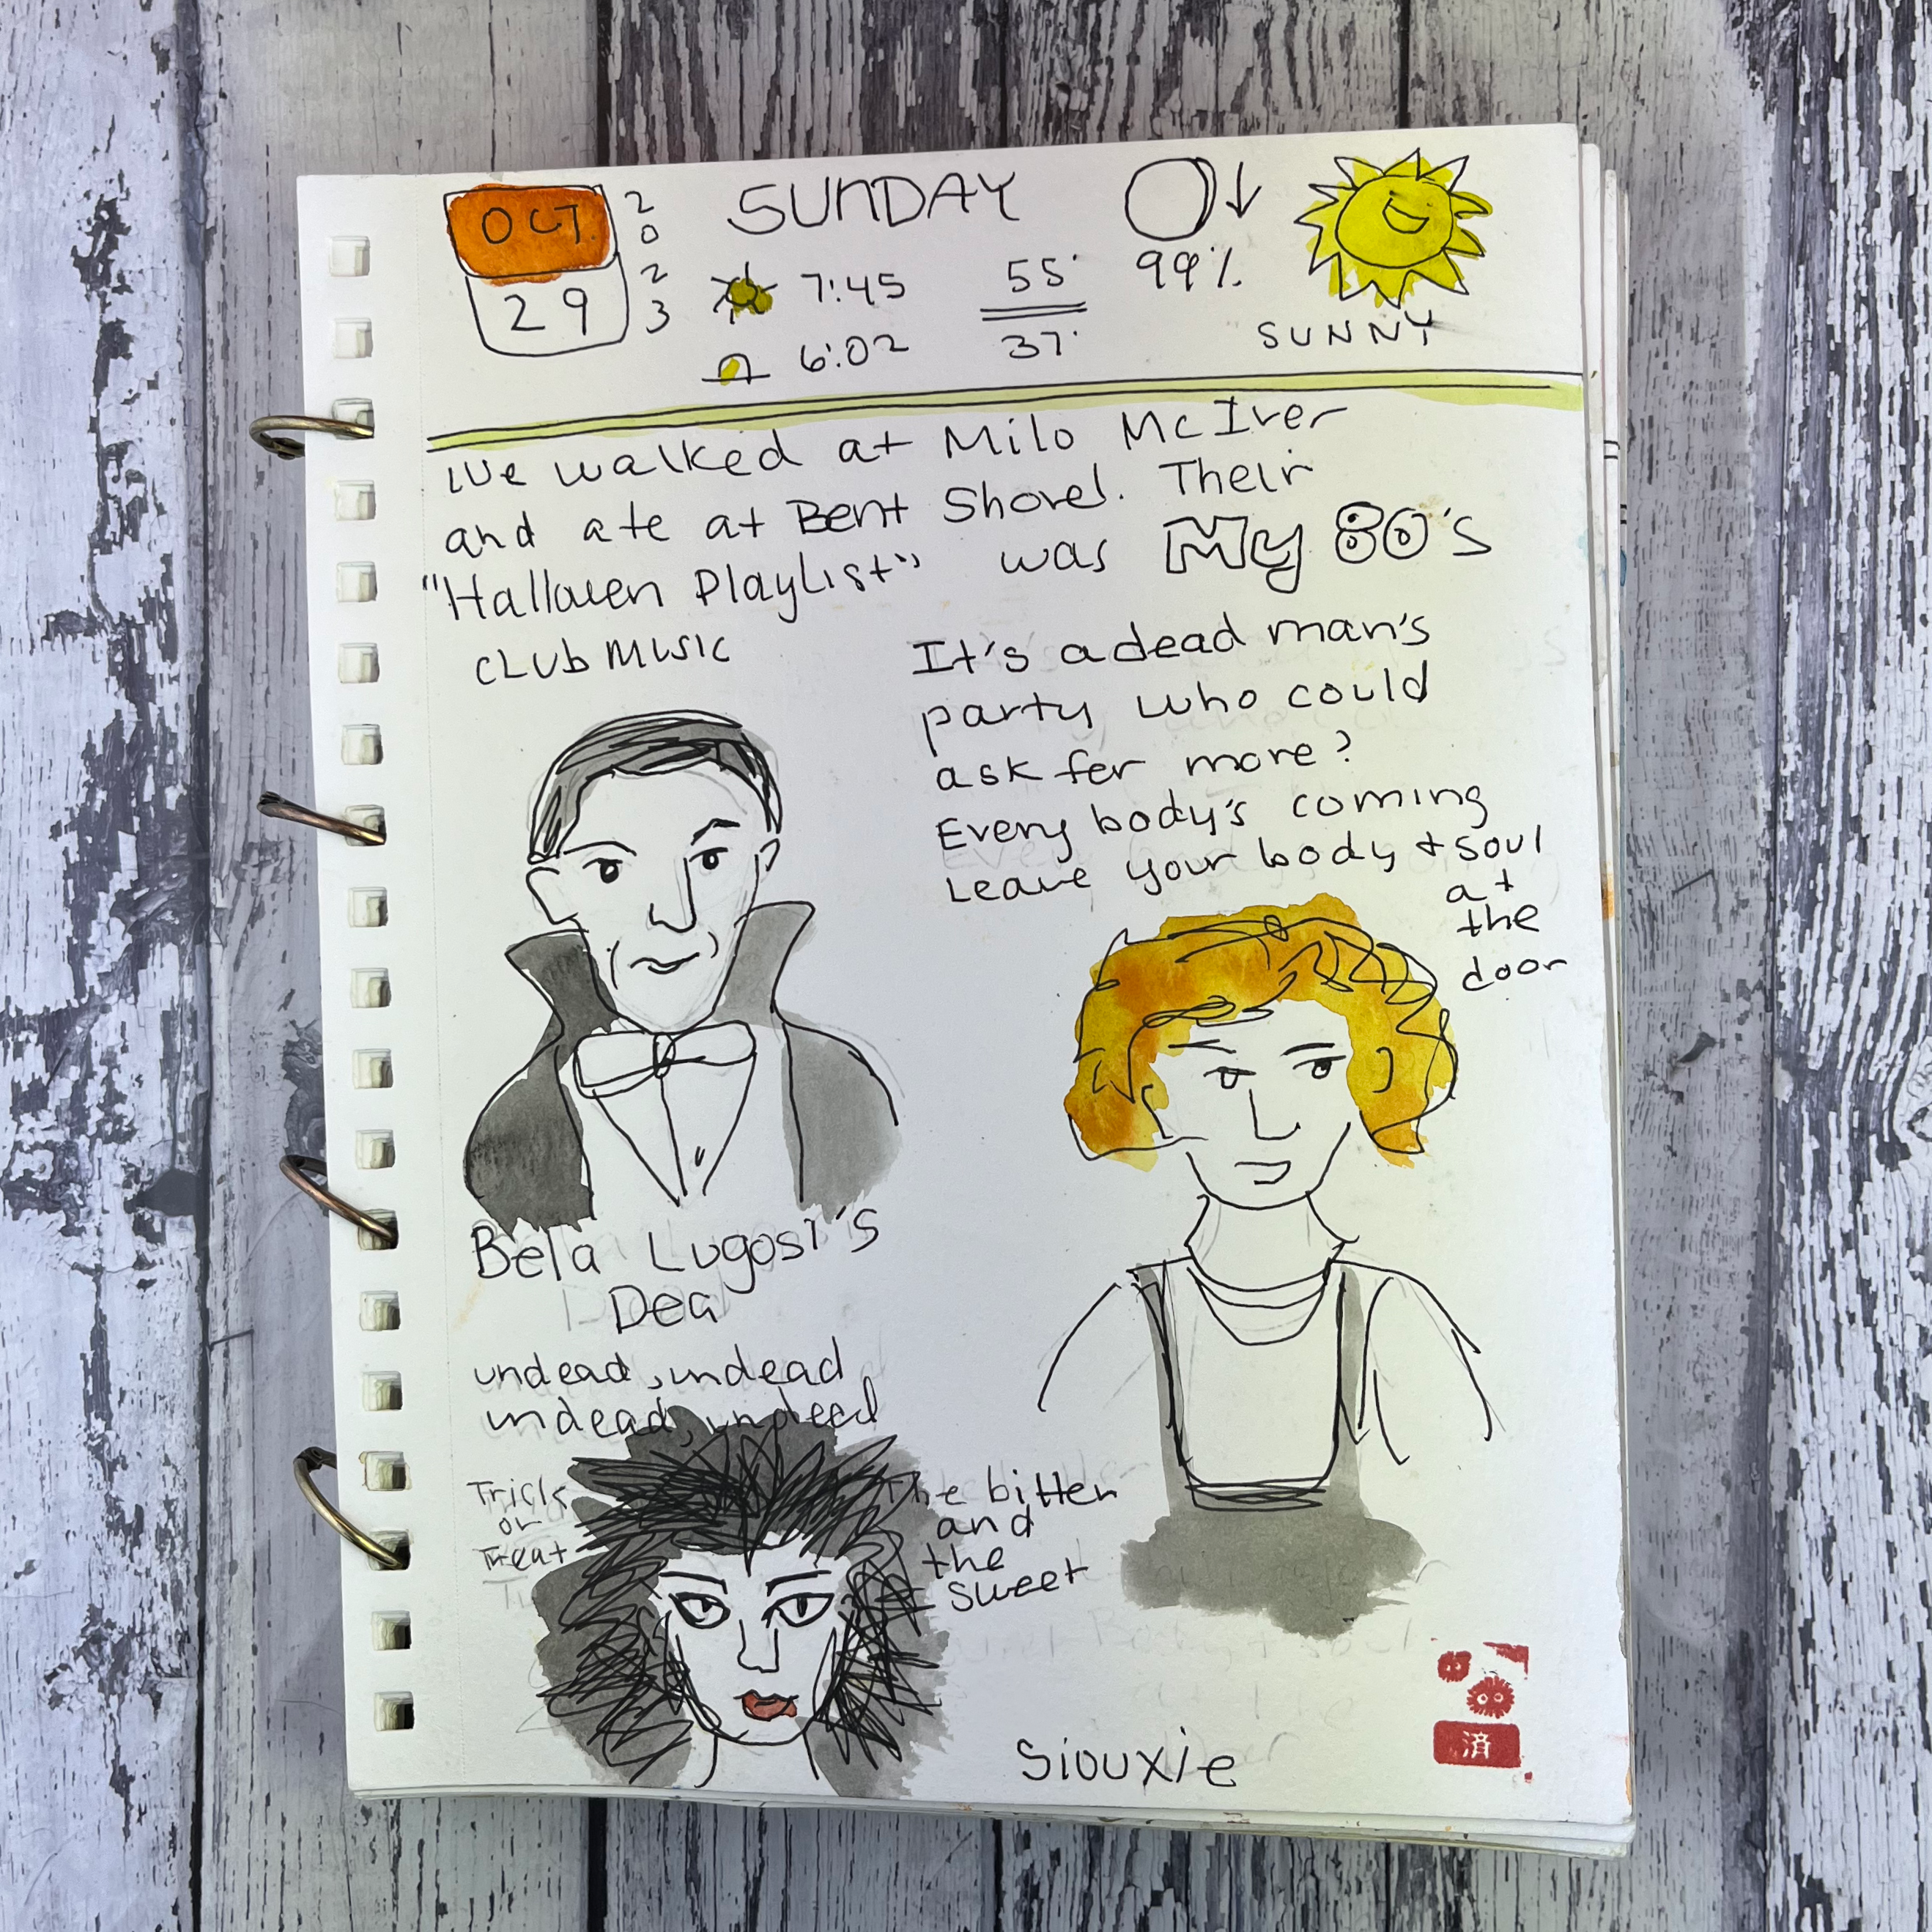 OCT.
29
2023
SUNDAY
7:45
6:02
55°
37°
99%
SUNNY
We walked at Milo McIver
and ate at Bent Shovel. Their
"Halloween Playlist" was My 80's
CLUB MUSIC
It's a dead man's
party who could
ask for more?
Everybody's coming
Leave your body + soul
at
the
door
Bela Lugosi's
Dea
undead, undead
undead, undeed
Trick
or
Treat
The bitter
and
the
sweet
Siouxie
済